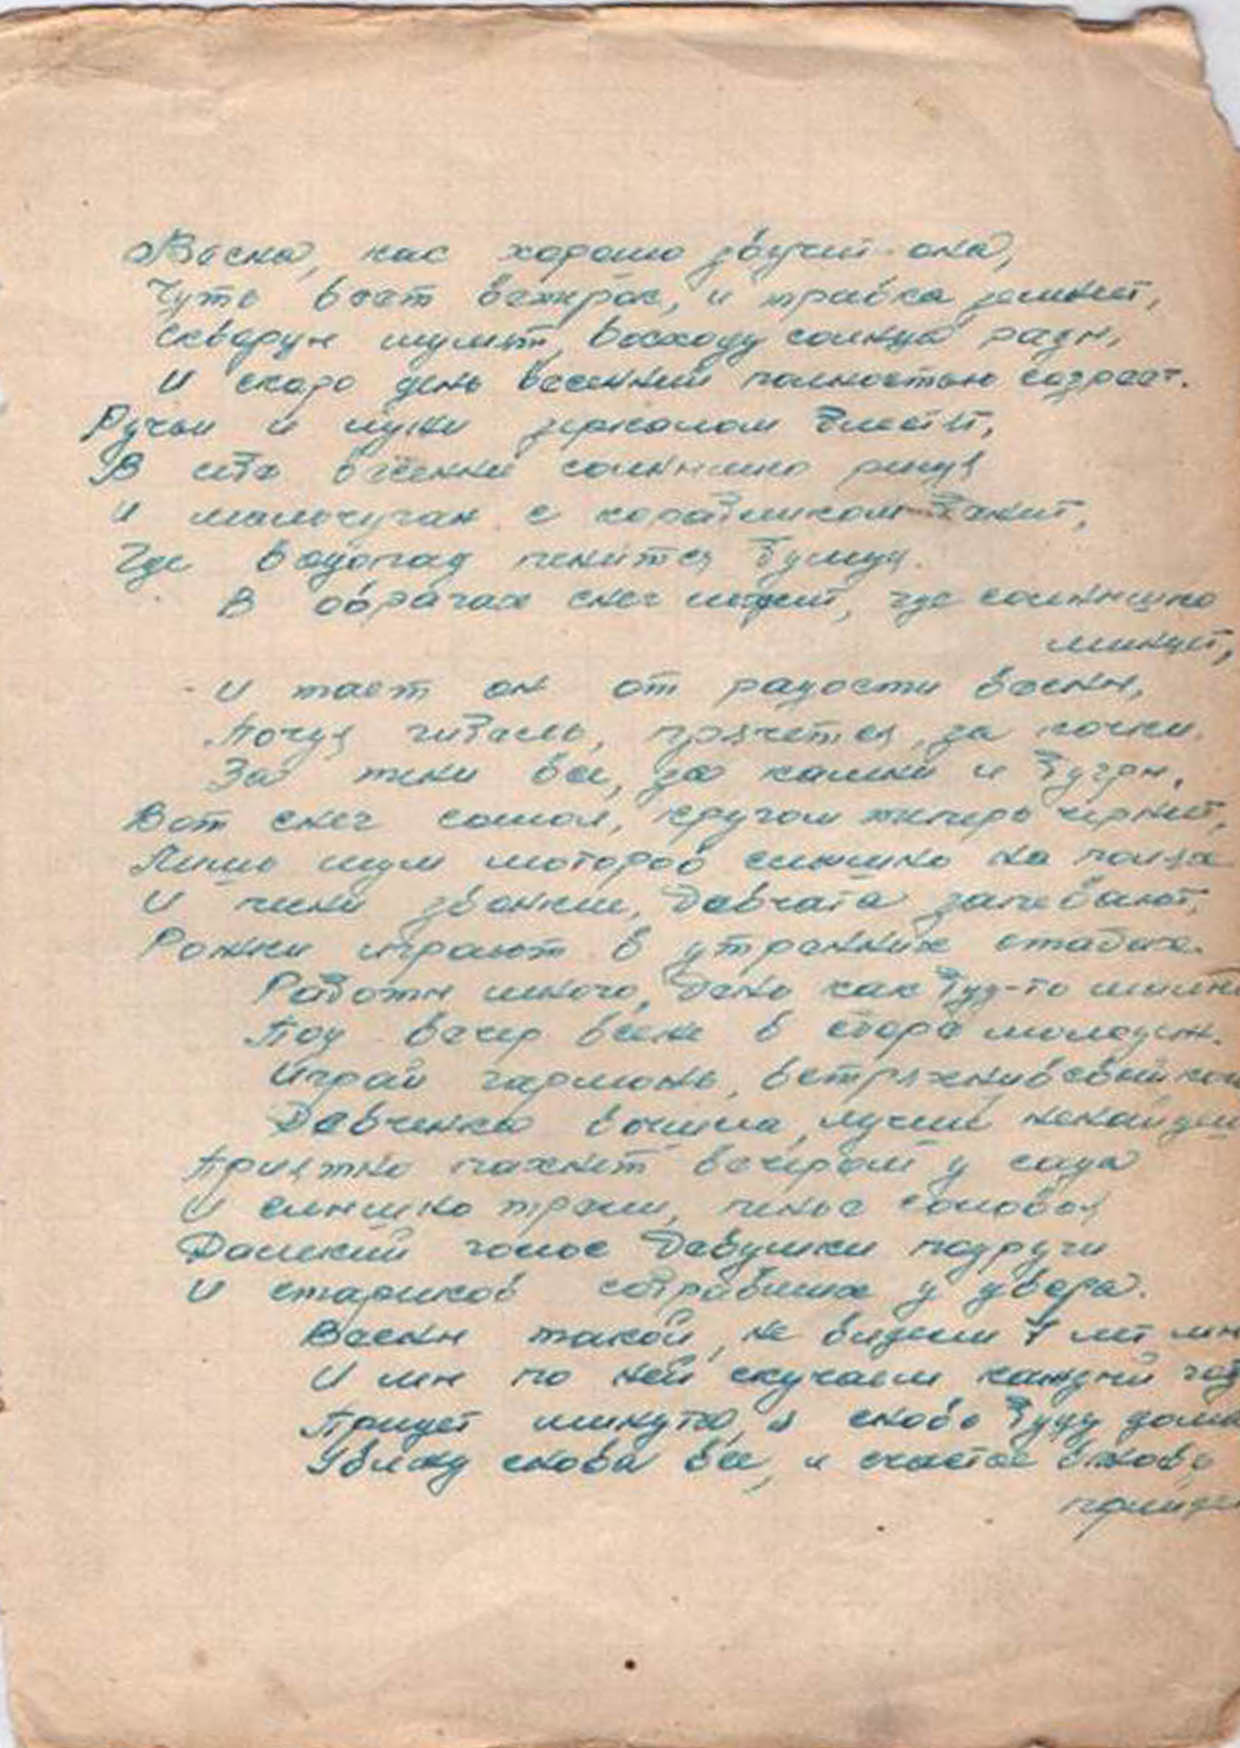 Весна, как хорошо звучит она,
Чуть веет ветерок, и травка зелинеет,
Скворцы шумят, восходу солнца рады,
И скоро день весенний полностью созреет.
Ручьи и лужи зеркалом блестят,
В небе весеннее солнышко
И мальчуган с корабликом бежит,
Где водопад пенится бушуя.
В оврагах снег лежит, где солнышко
минует,
И тает он от радости весны,
Почуя гибель, прячется за кочки
За пеньки все, за камни и бугры,
Вот снег сошол, кругом типерь чернеет,
Лишь шум моторов слышно на полях
И песни звонкие, девчата запевают,
Рожки играют в утренних стадах.
Работы много, день как будто милый
Под вечер все в сборе молодеж.
Играй гармонь, встряхни свой
Девченка вочила, лучше ненайдеш
Приятно пахнет вечером у сада
И слышно трели, пенье соловья
Далекий голос девушки подруги
И стариков собравших у двора.
Весны такой, не видели 4 лет мы
И мы по ней скучаем каждый год
Придет минута, и снова буду дома
Увижу снова все, и счастье вновь
прийдет